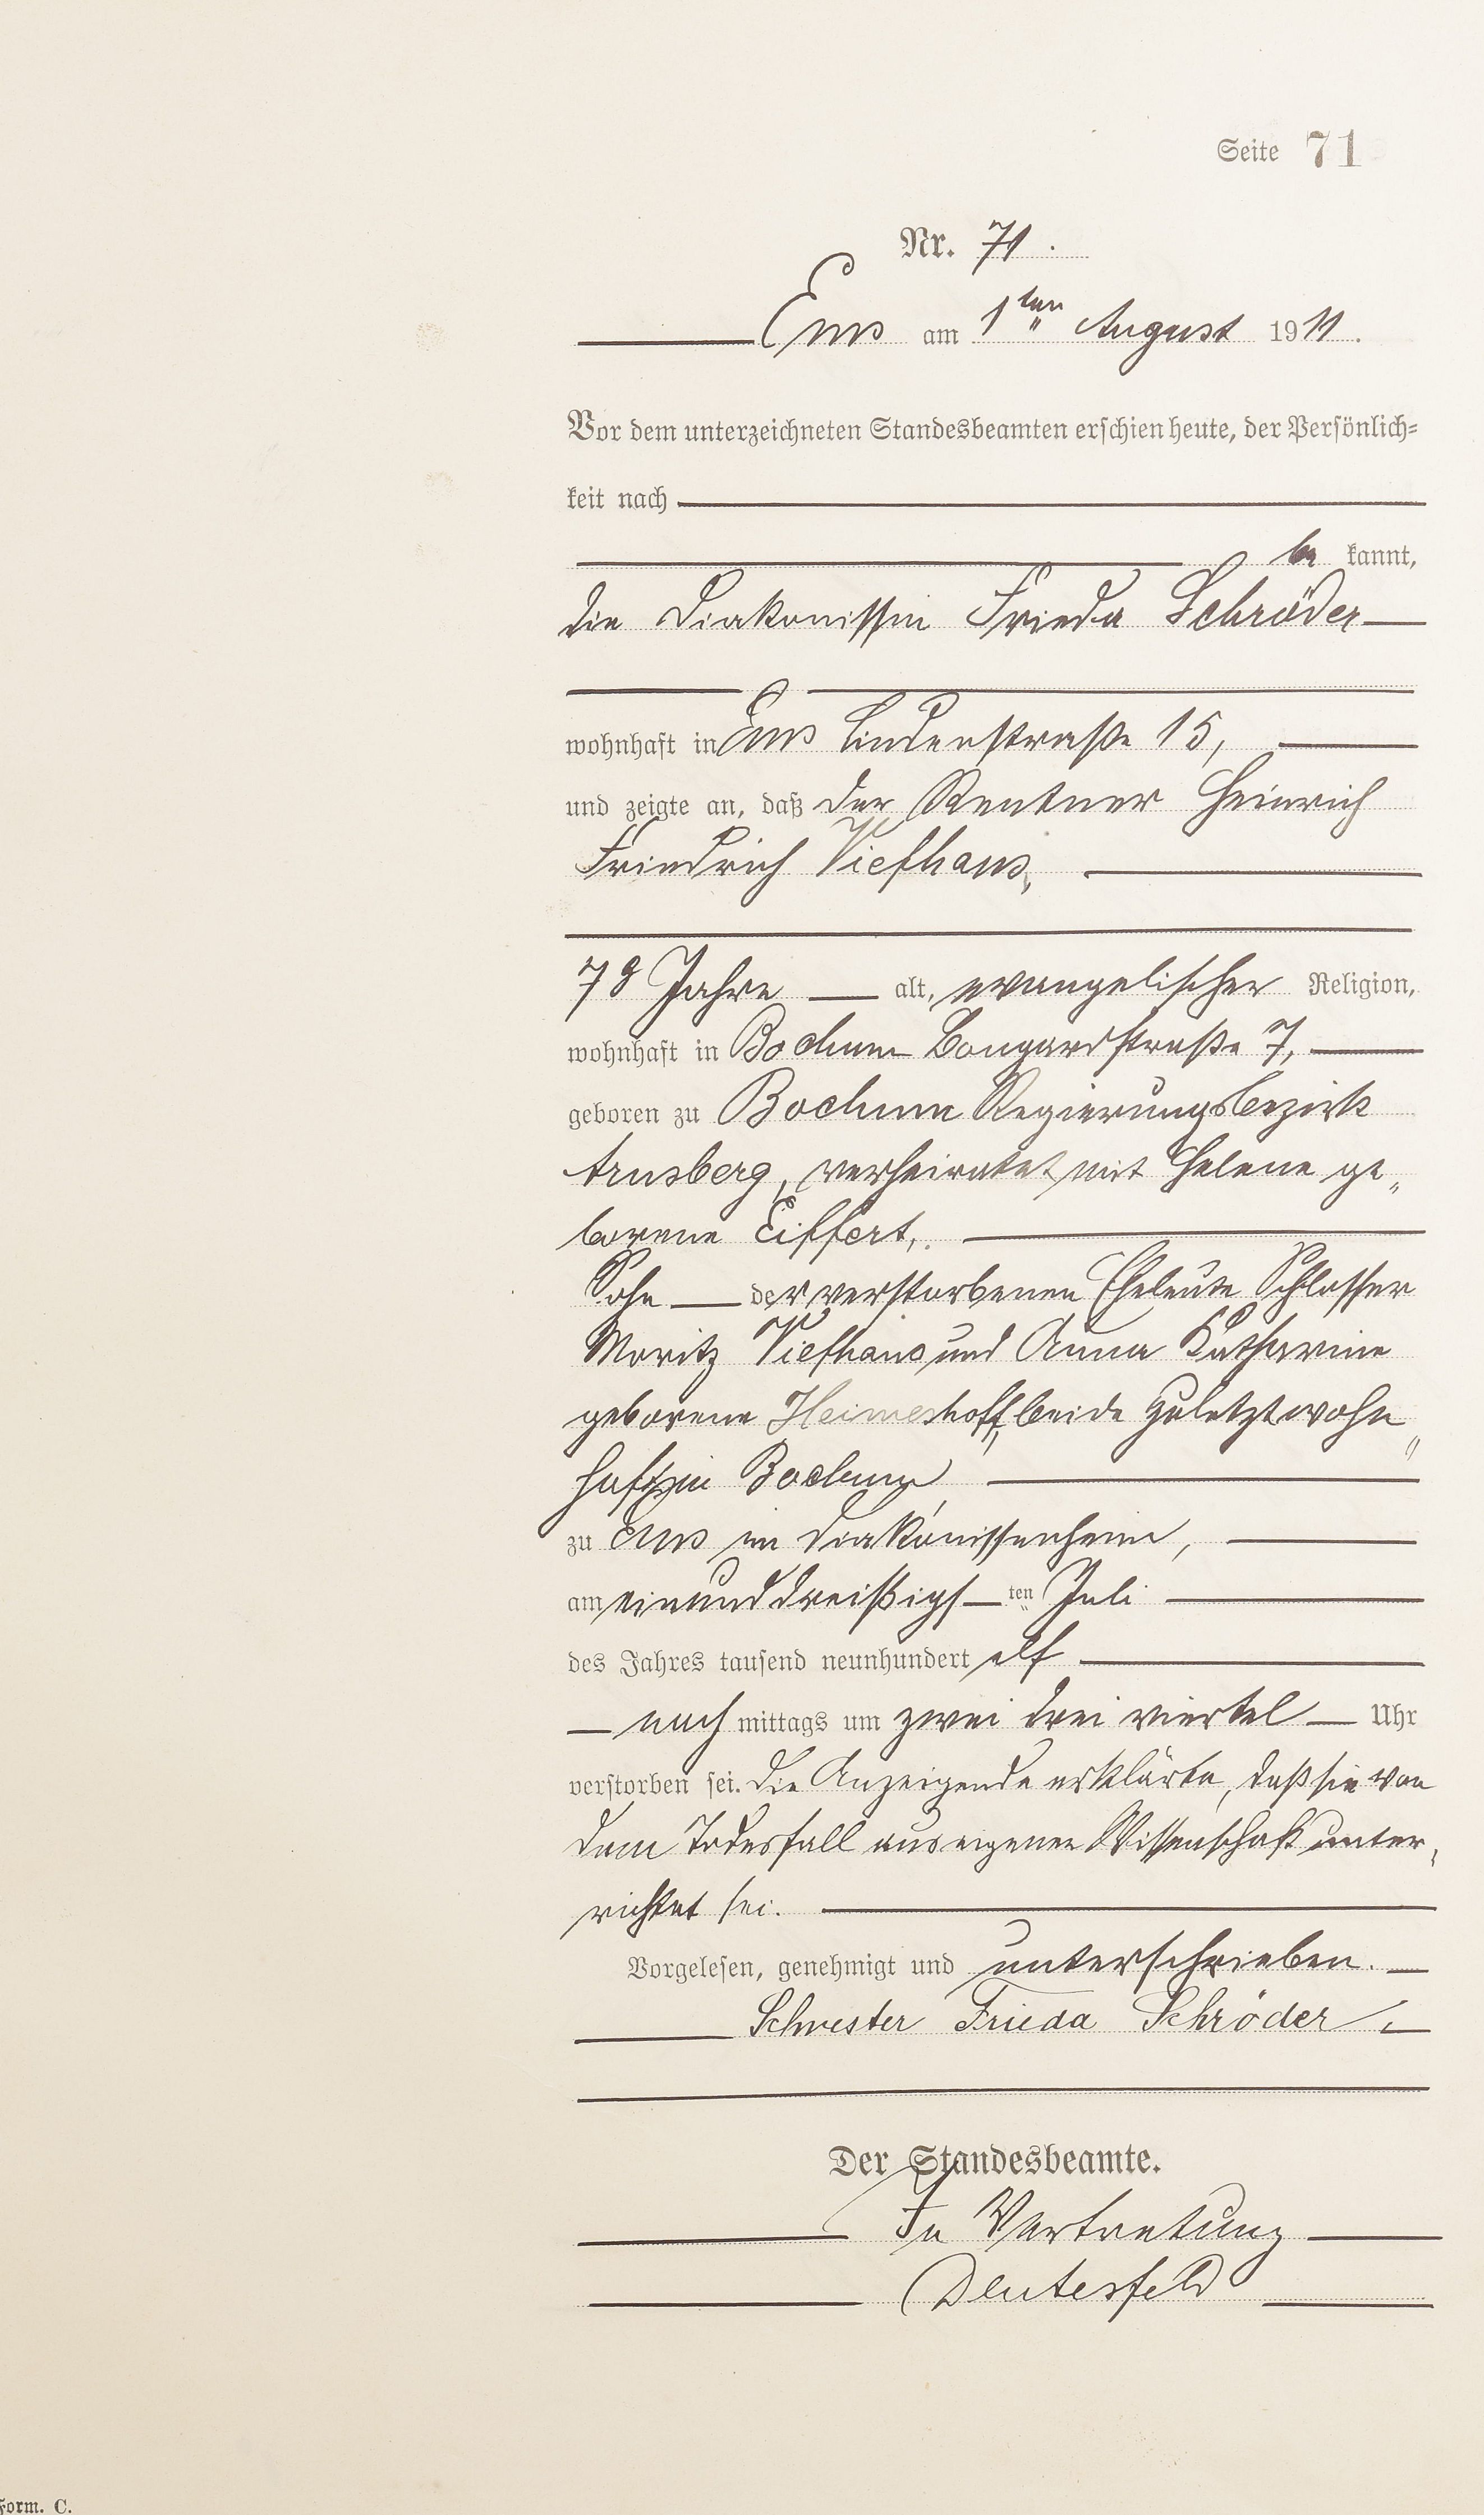 Seite 71
Nr. 71.
Ems am 1ten August 1911.
Vor dem unterzeichneten Standesbeamten erschien heute, der Persönlich-
keit nach
be kannt,
die Diakonissin Frieda Schröder
wohnhaft in Ems Lindenstraße 15,
und zeigte an, daß der Rentner Heinrich
Friedrich Viefhaus,
78 Jahre alt, evangelischer Religion,
wohnhaft in Bochum Bongardstraße 7,
geboren zu Bochum Regierungsbezirk
Arnsberg, verheiratet mit Helene ge„
borene Eiffert,
Sohn der verstorbenen Eheleute Schlosser
Moritz Viefhaus und Anna Katharine
geborene Heimeshoff, beide zuletzt wohn„
haft in Bochum
zu Ems im Diakonissenheim,
am einunddreißigsten Juli
des Jahres tausend neunhundert elf
nach mittags um zwei drei viertel Uhr
verstorben sei. Die Anzeigende erklärte, daß sie von
dem Todesfall aus eigener Wissenschaft unter„
richtet sei.
Vorgelesen, genehmigt und unterschrieben.
Schwester Frieda Schröder.
Der Standesbeamte.
In Vertretung
Deutesfeld
Form. C.